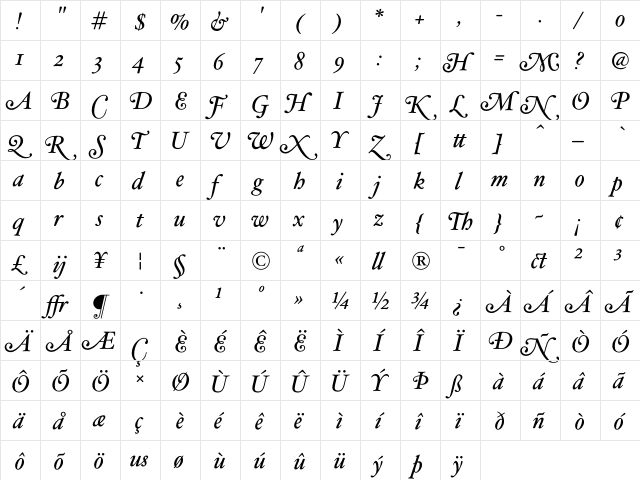 ! " # $ % & ' ( ) * + , - . / 0
1 2 3 4 5 6 7 8 9 : ; H = M ? @
A B C D E F G H I J K L M N O P
Q R S T U V W X Y Z [ tt ] ˆ – `
a b c d e f g h i j k l m n o p
q r s t u v w x y z { Th } ~ ¡ ¢
£ ij ¥ ¦ § ¨ © ª « ll ® ¯ ° ct ² ³
´ ffr ¶ · ¸ ¹ º » ¼ ½ ¾ ¿ À Á Â Ã
Ä Å Æ Ç È É Ê Ë Ì Í Î Ï Ð Ñ Ò Ó
Ô Õ Ö × Ø Ù Ú Û Ü Ý Þ ß à á â ã
ä å æ ç è é ê ë ì í î ï ð ñ ò ó
ô õ ö us ø ù ú û ü ý þ ÿ